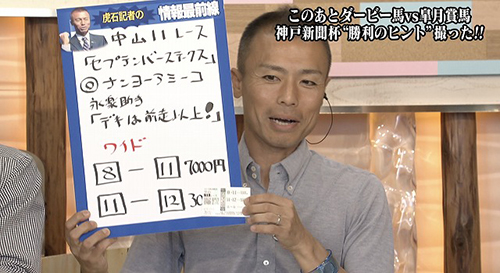 このあとダービー馬vs皐月賞馬
神戸新聞杯"勝利のヒント"撮った!!
虎石記者の
情報最前線
中山11レース
「セプテンバーステークス」
◎ナンヨーアミーコ
永楽助手
「デキは前走以上!」
ワイド
8 ー 11 7000円
11 ー 12 30